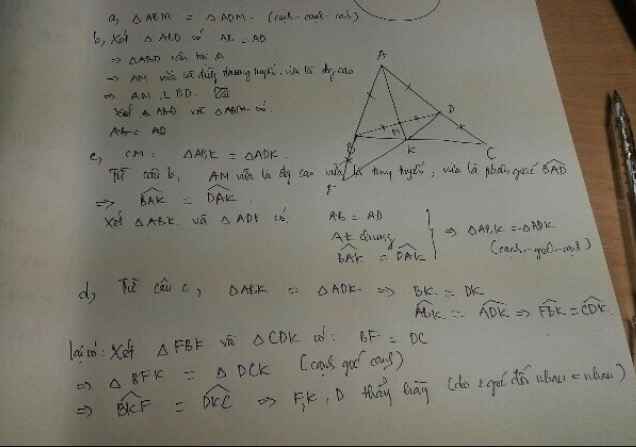 a, △ABM = △ADM. (cạnh-cạnh-cạnh)
b, Xét △ABD có AB = AD
⇒ △ABD cân tại A
⇒ AM vừa là đường trung tuyến, vừa là đg cao
⇒ AM ⊥ BD.
Xét △ABD và △ABM có
AB = AD
c, CM: △ABK = △ADK.
Từ câu b, AM vừa là đg cao vừa là trung tuyến, vừa là phân giác BAD
⇒ BAK = DAK
Xét △ABK và △ADK có
AB = AD
AK chung
BAK = DAK
⇒ △ABK = △ADK
(cạnh-góc-cạnh)
A
B
M
D
K
C
F
d, Từ câu c, △ABK = △ADK ⇒ BK = DK
ABK = ADK ⇒ FBK = CDK
lại có: Xét △FBK và △CDK có: BF = DC
⇒ △BFK = △DCK (cạnh góc cạnh)
⇒ BKF = DKC ⇒ F, K, D thẳng hàng (do 2 góc đối nhau = nhau)